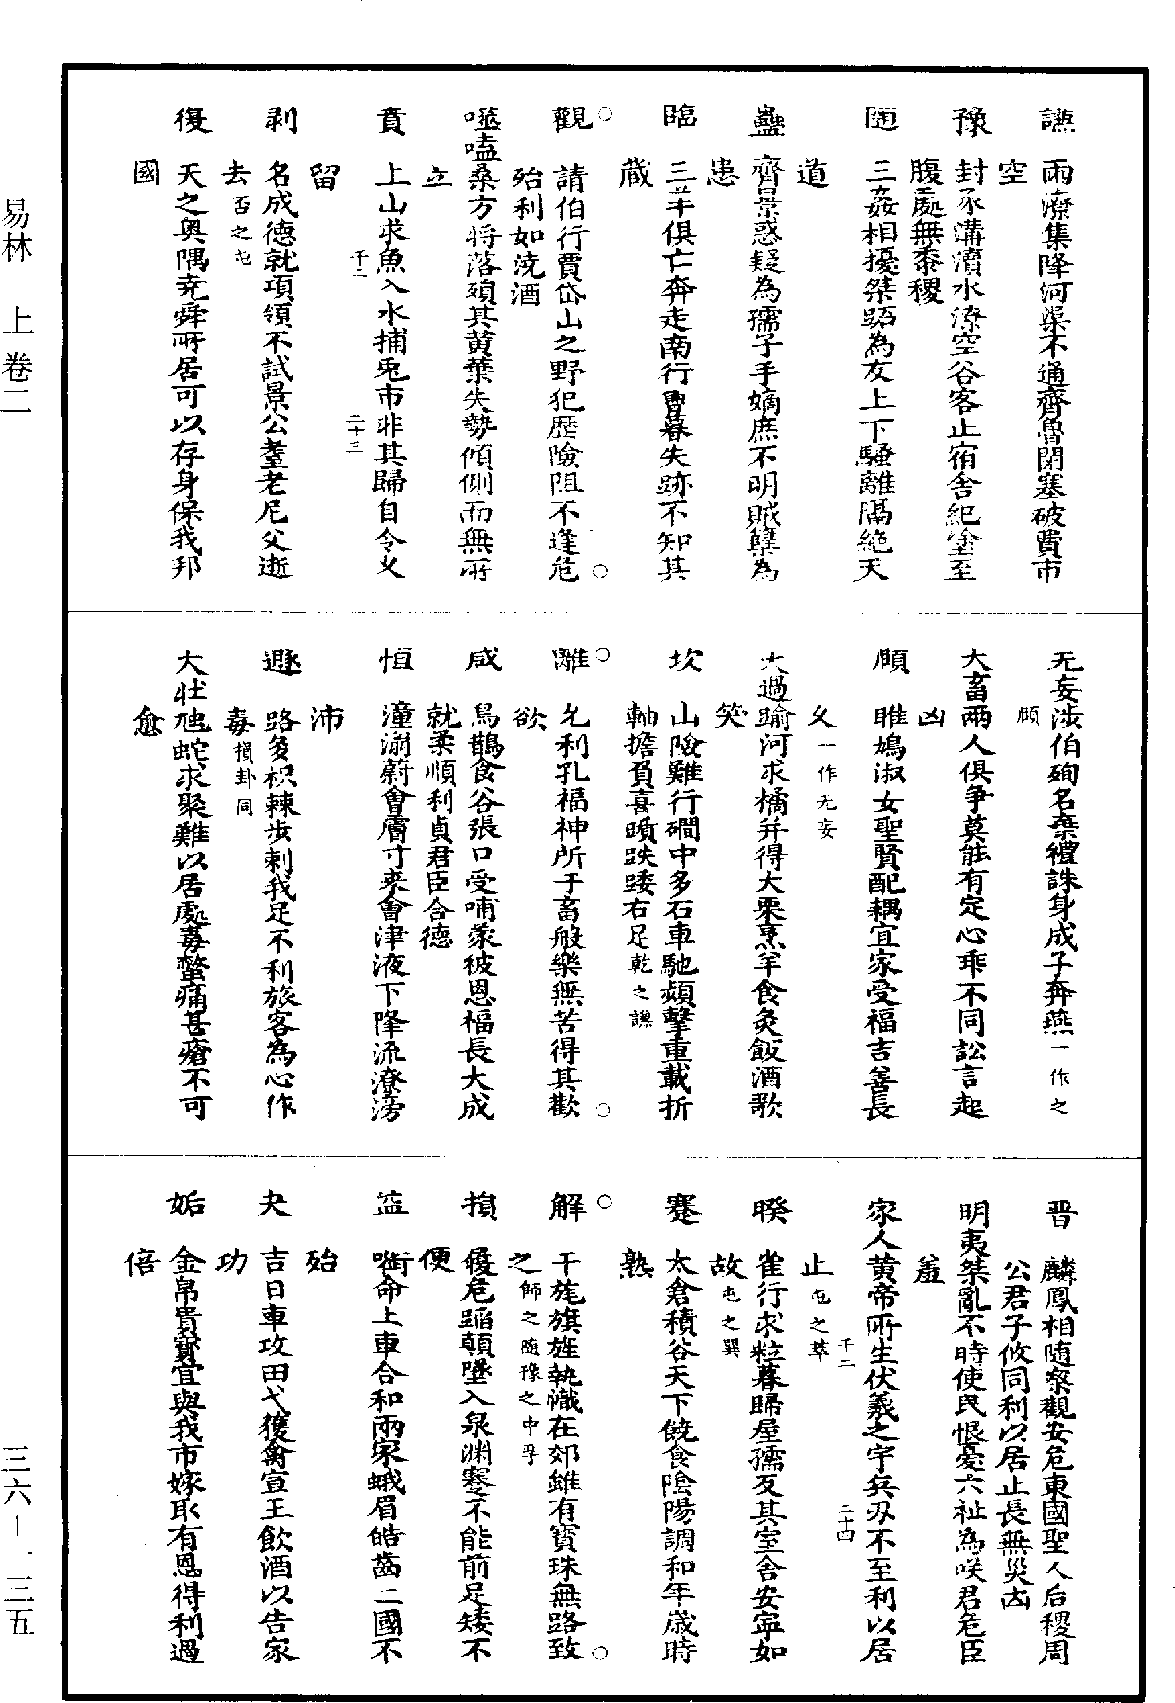 謙　雨潦集降河渠不通齊魯閉塞破費市
空
豫　封豕溝瀆水潦空谷客止宿舍紀塗至
腹處無黍稷
隨　三姦相擾桀跖為友上下騷離隔絕天
道
蠱　齊景惑疑為孺子牛嫡庶不明賊孽為
患
臨　三羊俱亡奔走南行會暮失跡不知其
蔵
○觀　請伯行賈岱山之野犯歷險阻不逢危○
殆利如澆酒
噬嗑桑方將落隕其黃葉失勢傾側而無所
立
賁　上山求魚入水捕兎市非其歸自令久
留
千二　二十三
剥　名成德就項領不試景公耋老尼父逝
去否之屯
復　天之奥隅堯舜所居可以存身保我邦
國
无妄涉伯殉名棄禮誅身成子奔燕一作之
頤
大畜兩人俱爭莫能有定心乖不同訟言起
凶
頤　睢鳩淑女聖賢配耦宜家受福吉善長
久一作无妄
大過踰河求橘并得大栗烹羊食炙飯酒歌
笑
坎　山險難行磵中多石車馳轊擊重載折
軸擔負喜躓跌踒右足乾之謙
○離　允利孔福神所子畜般樂無苦得其歡○
欲
咸　烏鵲食谷張口受哺蒙被恩福長大成
就柔順利貞君臣合德
恒　潼滃蔚會膚寸来會津液下降流潦滂
沛
遯　路多枳棘步刺我足不利旅客為心作
毒損卦同
大壯虺蛇求聚難以居處毒螫痛甚瘡不可
愈
晋　麟鳳相隨察觀安危東國聖人后稷周
公君子攸同利以居止長無災凶
明夷桀亂不時使民恨憂六祉為咲君危臣
羞
家人黄帝所生伏羲之宇兵刃不至利以居
止屯之萃
千二　二十四
睽　雀行求粒暮歸屋孺反其室舍安寧如
故屯之巽
蹇　太倉積谷天下饒食陰陽調和年歲時
熟
○解　干旄旗旌執幟在郊雖有寶珠無路致○
之師之隨豫之中孚
損　履危蹈顛墜入泉渊蹇不能前足矮不
便
益　啣命上車合和兩家蛾眉皓齒二國不
殆
夬　吉日車攻田弋獲禽宣王飲酒以告家
功
姤　金帛貴寳宜與我市嫁取有恩得利過
倍
易林　上卷二
三六－一三五